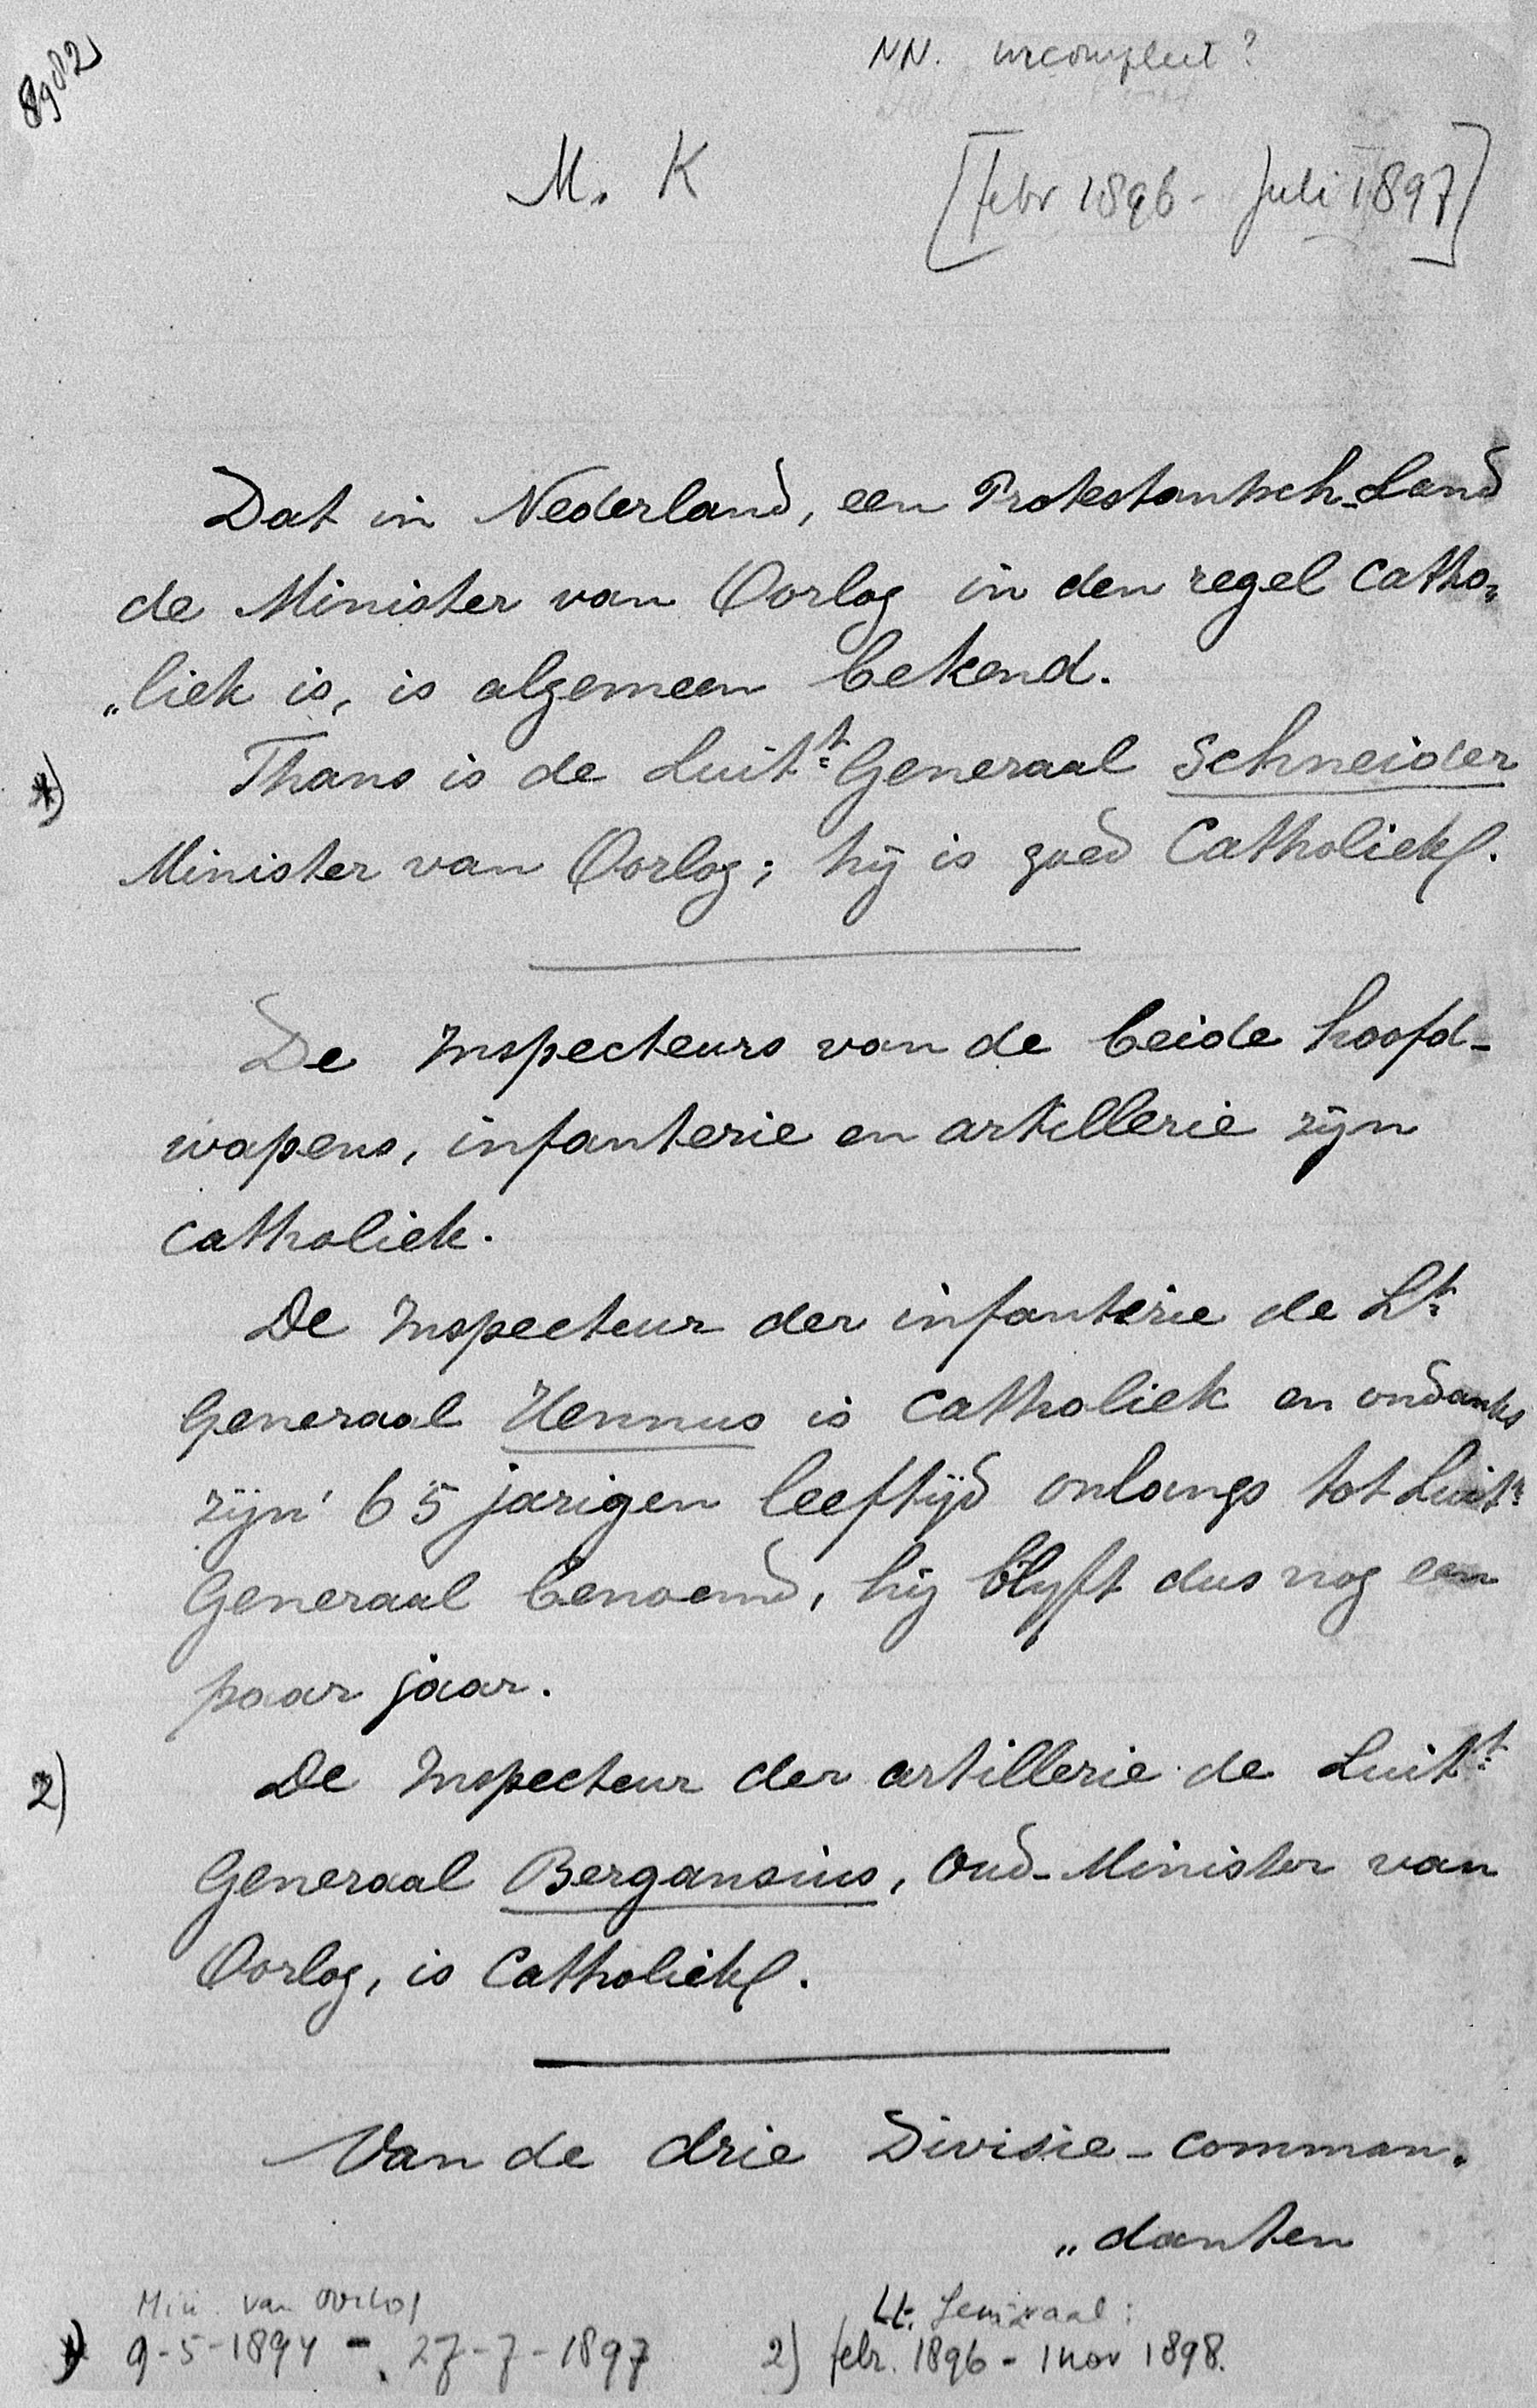 8982
NN. incompleet?
M. K
[febr 1896 - Juli 1897]
Dat in Nederland, een Protestantsch-Land
de Minister van Oorlog in den regel catho„
„liek is, is algemeen bekend.
*) Thans is de Luitt. Generaal Schneider
Minister van Oorlog; hij is goed Catholiek.
De Inspecteurs van de beide hoofd-
wapens, infanterie en artillerie zijn
catholiek.
De Inspecteur der infanterie de Lt.
Generaal Hennus is catholiek en ondanks
zijn' 65 jarigen leeftijd onlangs tot Luitt.
Generaal benoemd, hij blijft dus nog een
paar jaar.
2) De Inspecteur der artillerie de Luitt.
Generaal Bergansius, Oud-Minister van
Oorlog, is Catholiek.
Van de drie Divisie-comman„
„danten
Min. van Oorlog
*) 9-5-1894 - 27-7-1897
Lt. Generaal:
2) febr. 1896 - 1 nov 1898.